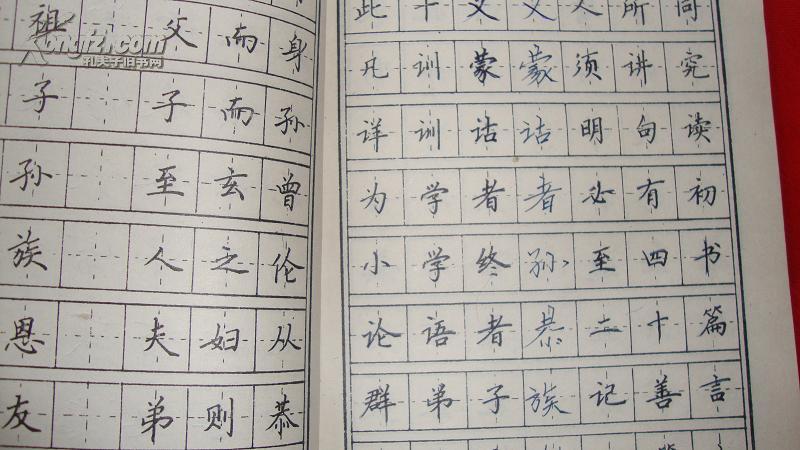 Kongfz.com
孔夫子旧书网
祖 父 而 身
子 子 而 孙
孙 至 玄 曾
族 人 之 伦
恩 夫 妇 从
友 弟 则 恭
此 十 义 义 人 所 同
凡 训 蒙 蒙 须 讲 究
详 训 诂 诂 明 句 读
为 学 者 者 必 有 初
小 学 终 孙 至 四 书
论 语 者 恭 二 十 篇
群 弟 子 族 记 善 言